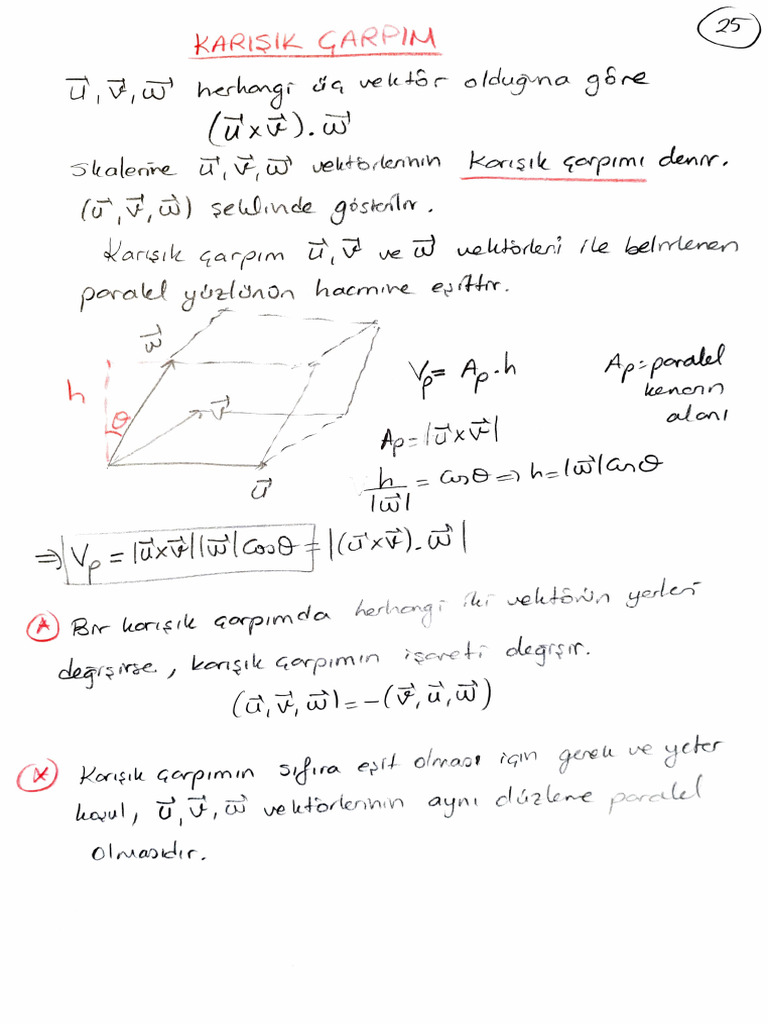 25
KARIŞIK ÇARPIM
u⃗, v⃗, w⃗ herhangi üç vektör olduğuna göre
(u⃗ x v⃗). w⃗
skalerine u⃗, v⃗, w⃗ vektörlerinin karışık çarpımı denir.
(u⃗, v⃗, w⃗) şeklinde gösterilir.
Karışık çarpım u⃗, v⃗ ve w⃗ vektörleri ile belirlenen
paralel yüzlünün hacmine eşittir.
w⃗
h
θ
v⃗
u⃗
Vp = Ap . h
Ap = paralel
kenarın
alanı
Ap = |u⃗ x v⃗|
h/|w⃗| = cosθ ⇒ h = |w⃗| cosθ
⇒ Vp = |u⃗ x v⃗| |w⃗| cosθ = |(u⃗ x v⃗). w⃗|
* Bir karışık çarpımda herhangi iki vektörün yerleri
değişirse, karışık çarpımın işareti değişir.
(u⃗, v⃗, w⃗) = -(v⃗, u⃗, w⃗)
* Karışık çarpımın sıfıra eşit olması için gerek ve yeter
koşul, u⃗, v⃗, w⃗ vektörlerinin aynı düzleme paralel
olmasıdır.